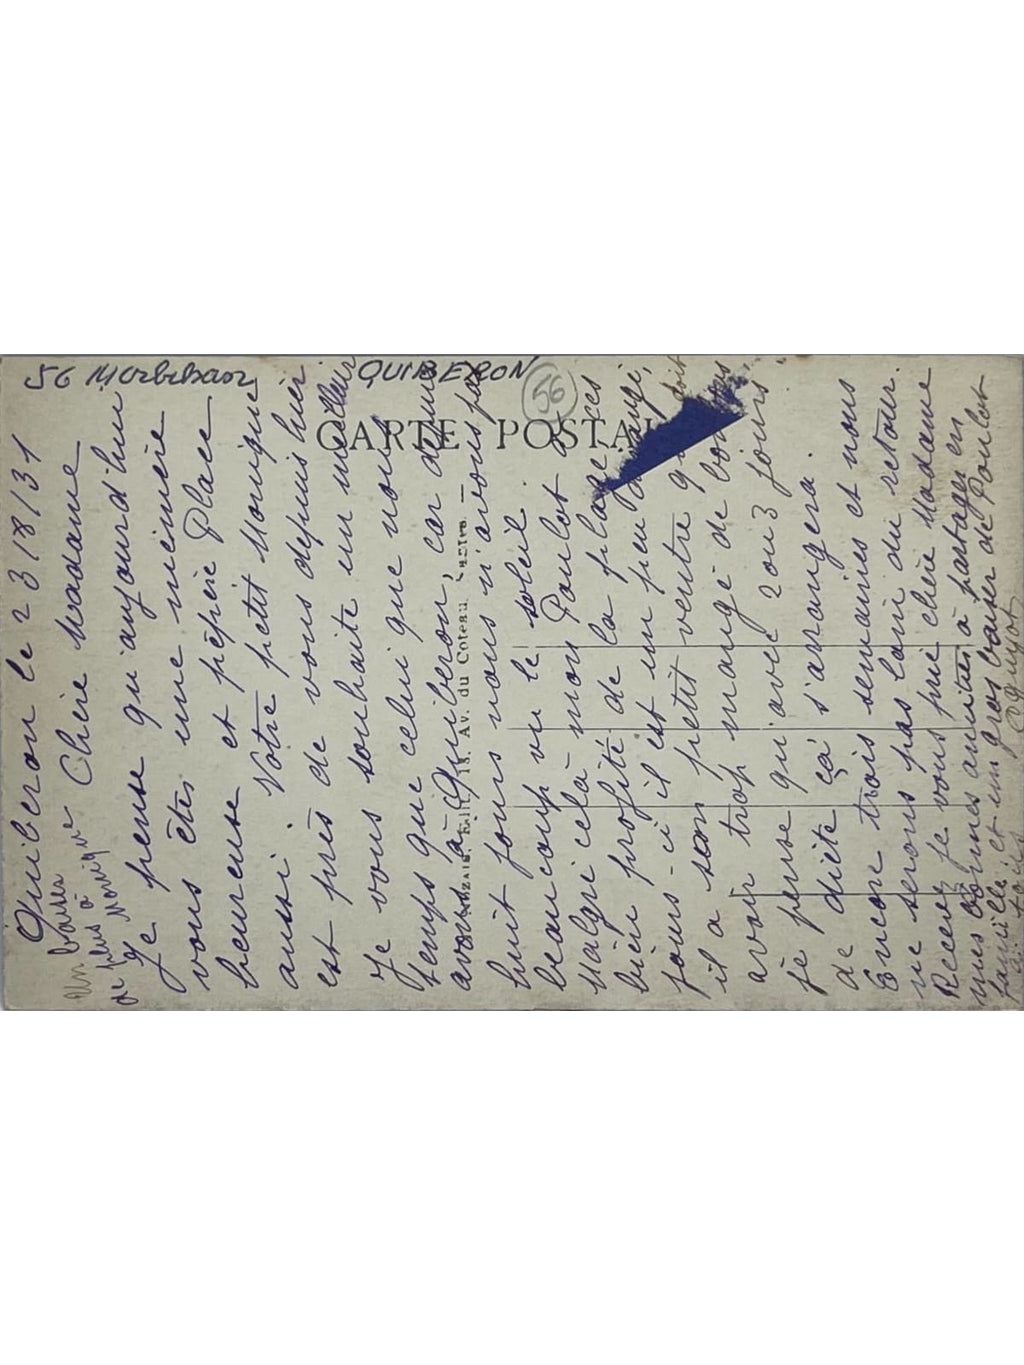 56 Morbihan
QUIBERON
56
CARTE POSTALE
Édit., 18, Av. du Coteau,
Quiberon le 23/8/31
Chère Madame
Je pense qu'aujourd'hui
vous êtes une mémère
heureuse et pépère Place
aussi. Votre petit Monique
est près de vous depuis hier
Je vous souhaite un meilleur
temps que celui que nous
avons à Quiberon, car depuis
huit jours nous n'avons pas
beaucoup vu le soleil.
Malgré celà mon Poulot a
bien profité de la plage, ces
jours-ci il est un peu
il a son petit ventre qui doit
avoir trop mangé de bonnes
je pense qu'avec 2 ou 3 jours
de diète çà s'arrangera.
Encore trois semaines et nous
ne serons pas loin du retour.
Recevez je vous prie chère Madame
mes bonnes amitiés à partager en
famille et un gros baiser de Poulot
à tous
Un baiser
de plus à
Monique